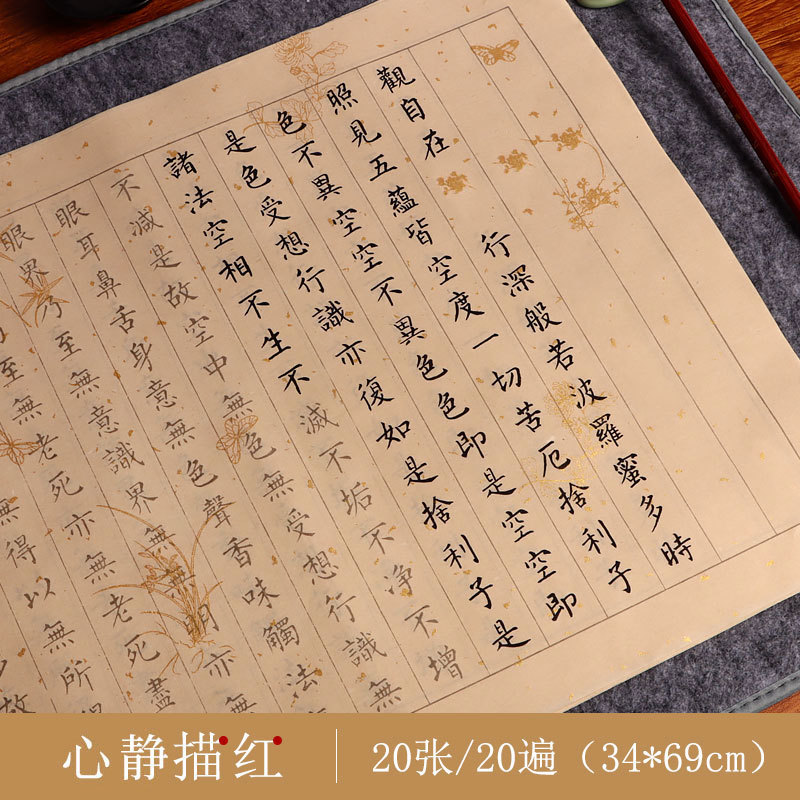 觀自在 行深般若波羅蜜多時
照見五蘊皆空度一切苦厄捨利子
色不異空空不異色色即是空空即
是色受想行識亦復如是捨利子是
諸法空相不生不滅不垢不净不增
不減是故空中無色無受想行識無
眼耳鼻舌身意無色聲香味觸法
眼界乃至無意識界無無明亦無
至無老死亦無老死盡
無得以無所
故
心静描红
20张/20遍（34*69cm）